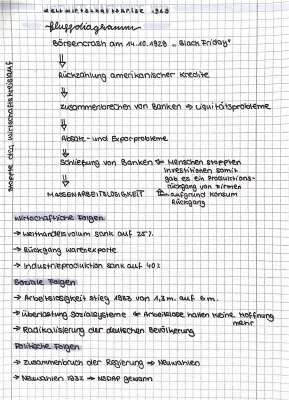 WELTWIRTSCHAFTSKRISE 1929
flussdiagramm
Börsencrash am 24.10.1929 „Black Friday"
Rückzahlung amerikanischer Kredite
zusammenbrechen von Banken → Liquitätsprobleme
Absatz- und Exporprobleme
Schließung von Banken ← Menschen stoppten
Investitionen somit
gab es ein Produktions-
rückgang von Firmen
aufgrund Konsum
Rückgang
MASSENARBEITSLOSIGKEIT
Wirtschaftliche Folgen
→ Welthandelsvolum sank auf 25%
→ Rückgang Warenexporte
→ Industrieproduktion sank auf 40%
Soziale Folgen
→ Arbeitslosigkeit stieg 1933 von 1,3m. auf 6m.
→ Überlastung Sozialsysteme ← Arbeitslose hatten keine Hoffnung
mehr
→ Radikalisierung der deutschen Bevölkerung
Politische Folgen
→ Zusammenbruch der Regierung → Neuwahlen
→ Neuwahlen 1932 → NSDAP gewann